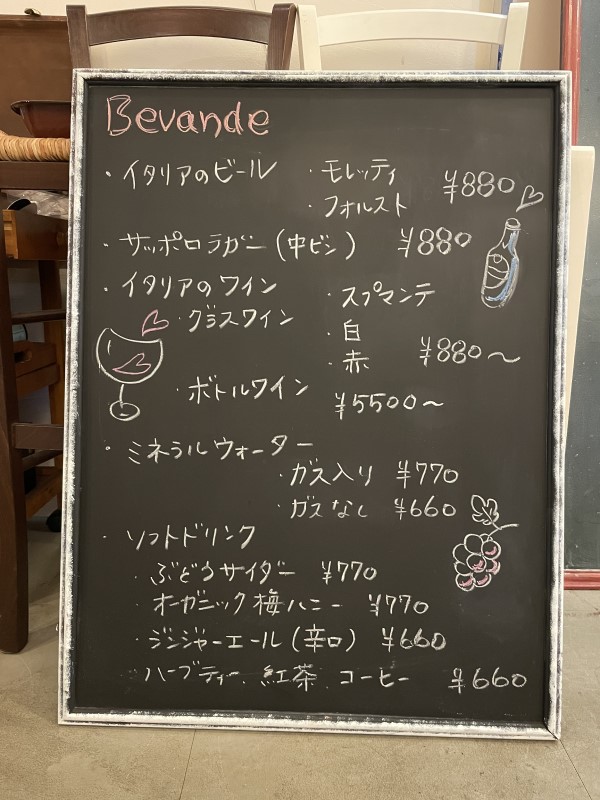 Bevande
・イタリアのビール ・モレッティ ¥880
・フォルスト
・サッポロラガー(中ビン) ¥880
・イタリアのワイン ・スプマンテ
・グラスワイン ・白
・赤 ¥880〜
・ボトルワイン ¥5500〜
・ミネラルウォーター
・ガス入り ¥770
・ガスなし ¥660
・ソフトドリンク
・ぶどうサイダー ¥770
・オーガニック梅ハニー ¥770
・ジンジャーエール(辛口) ¥660
・ハーブティー.紅茶.コーヒー ¥660